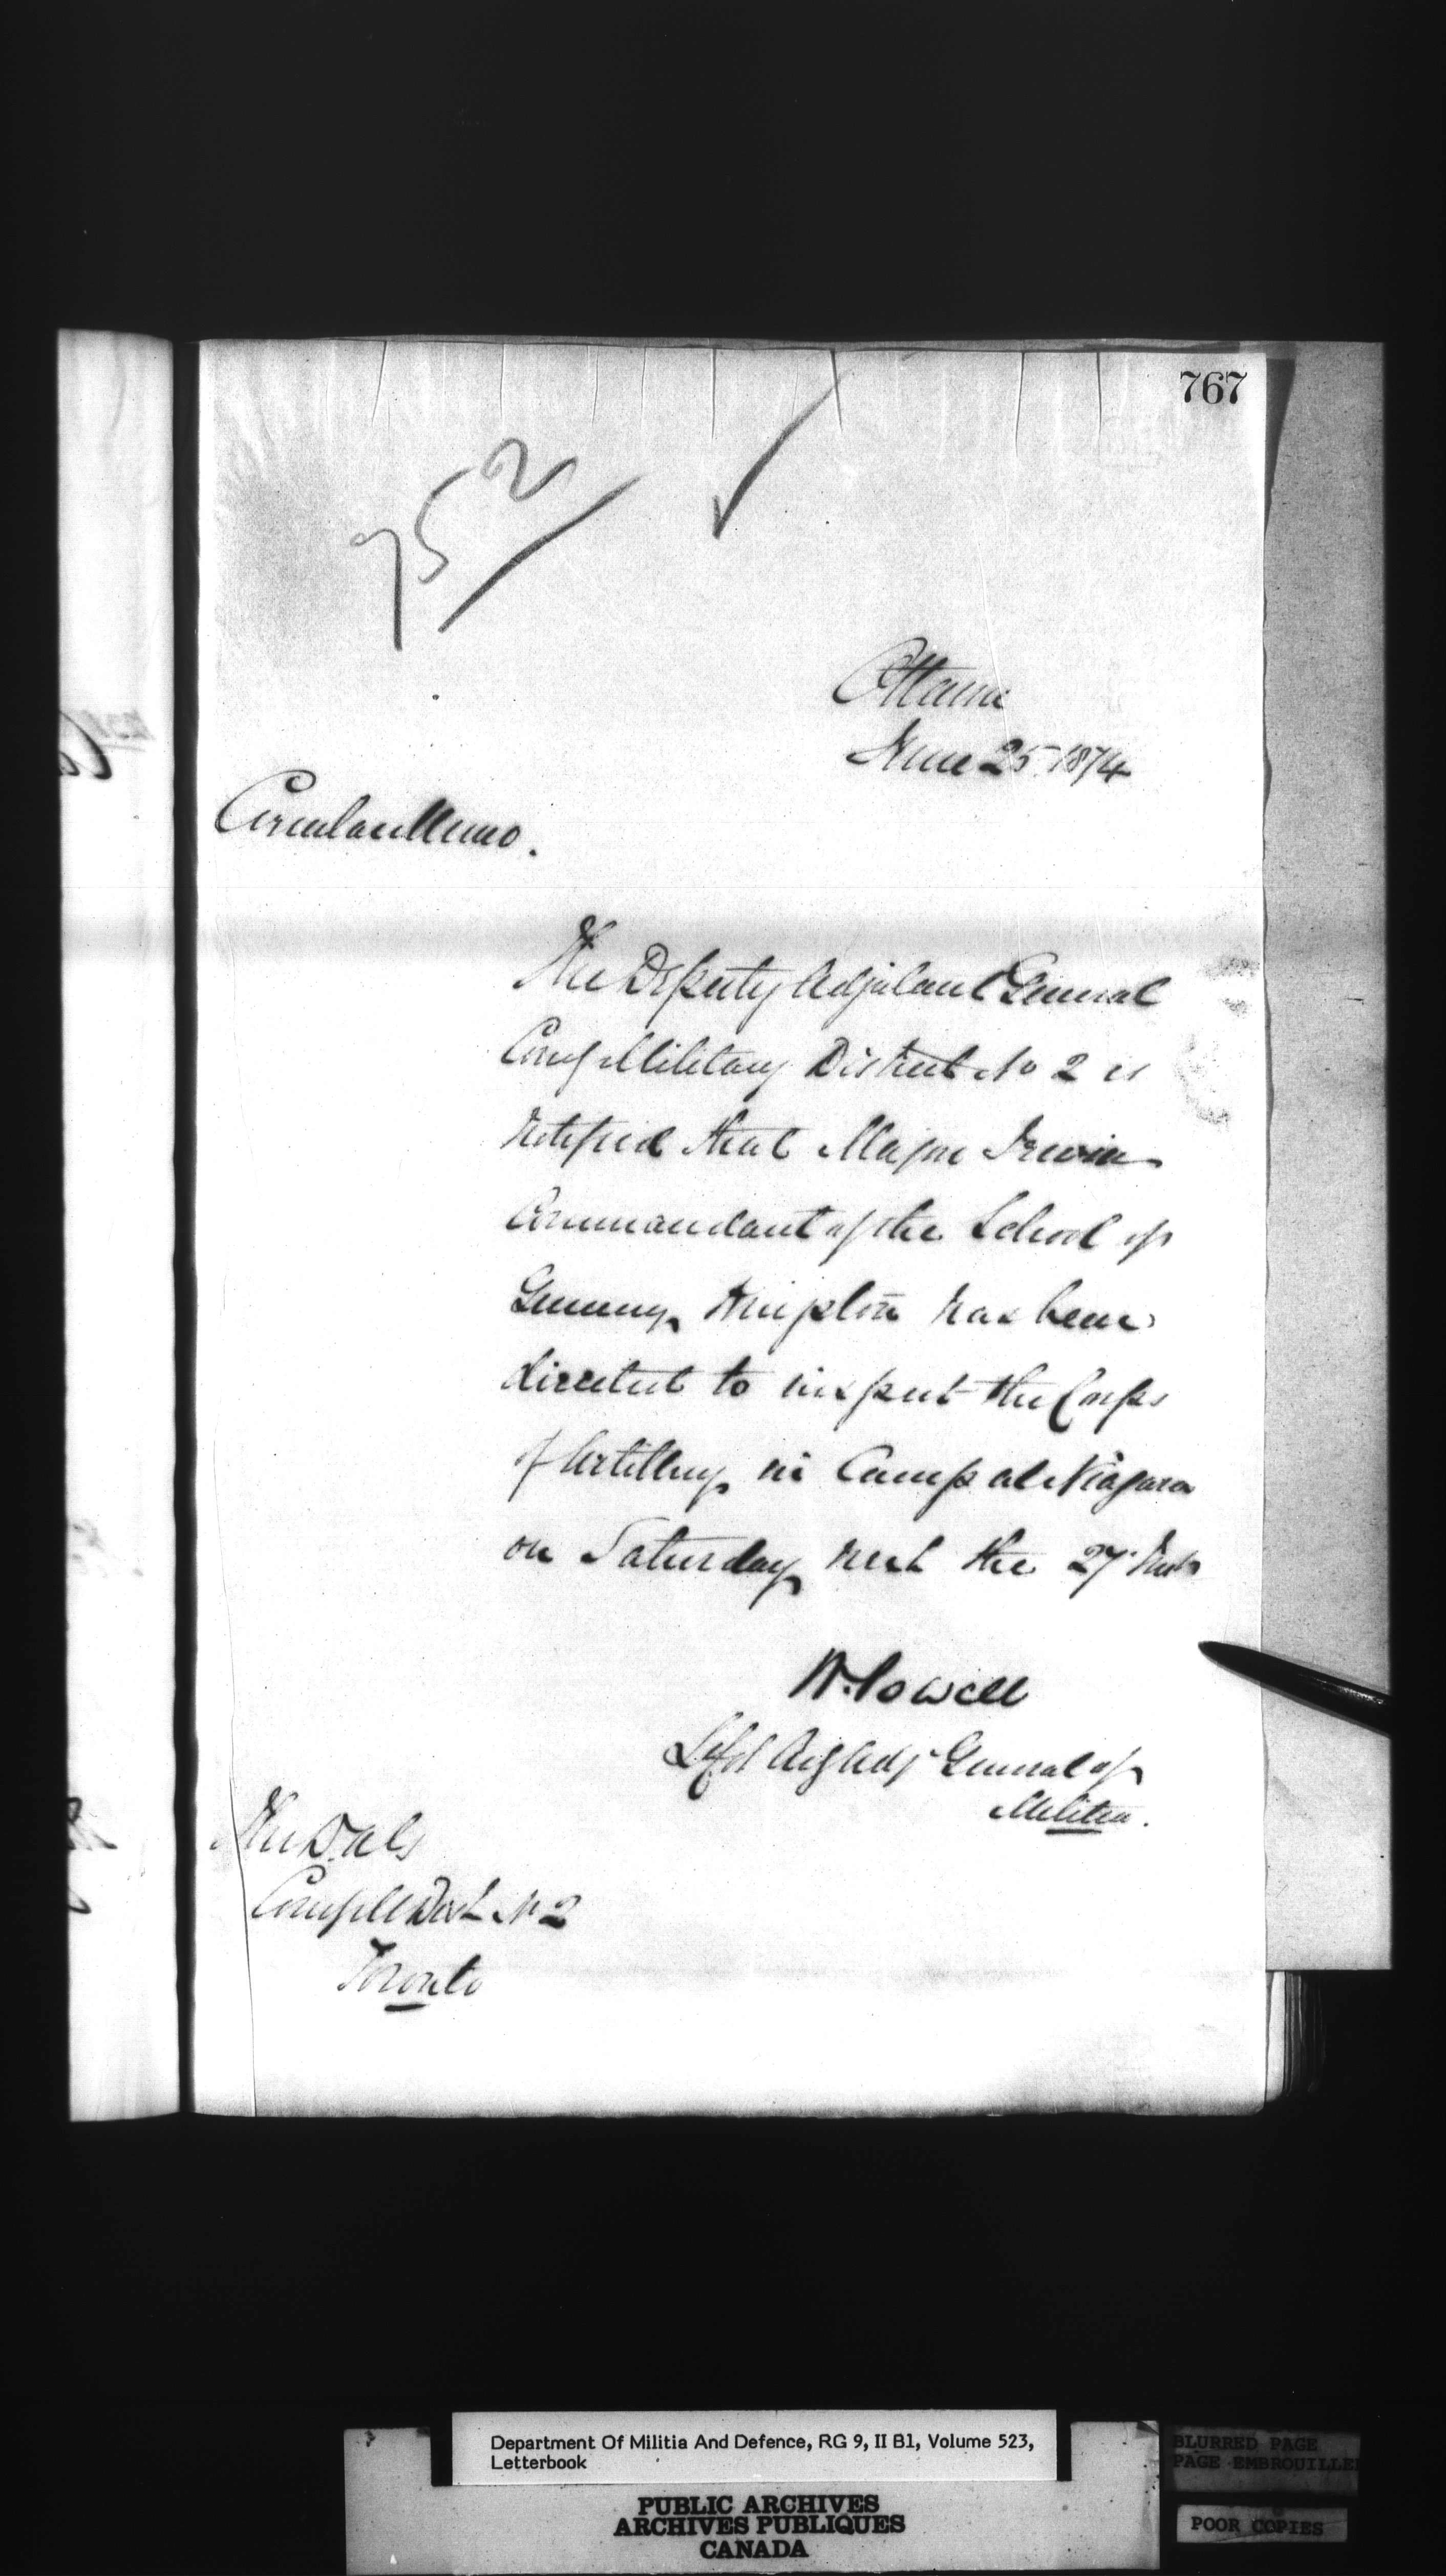 767
752
Ottawa
June 25 1874
Circular Memo.
The Deputy Adjutant General
Comg Military District No 2 is
notified that Major Irwin
Commandant of the School of
Gunnery, Kingston has been
directed to inspect the Corps
of Artillery in Camp at Niagara
on Saturday next the 27th Inst
W. Powell
Actg Adjt General of
Militia.
The D.A.G
Comg M Dist No 2
Toronto
Department Of Militia And Defence, RG 9, II B1, Volume 523,
Letterbook
PUBLIC ARCHIVES
ARCHIVES PUBLIQUES
CANADA
BLURRED PAGE
PAGE EMBROUILLEE
POOR COPIES